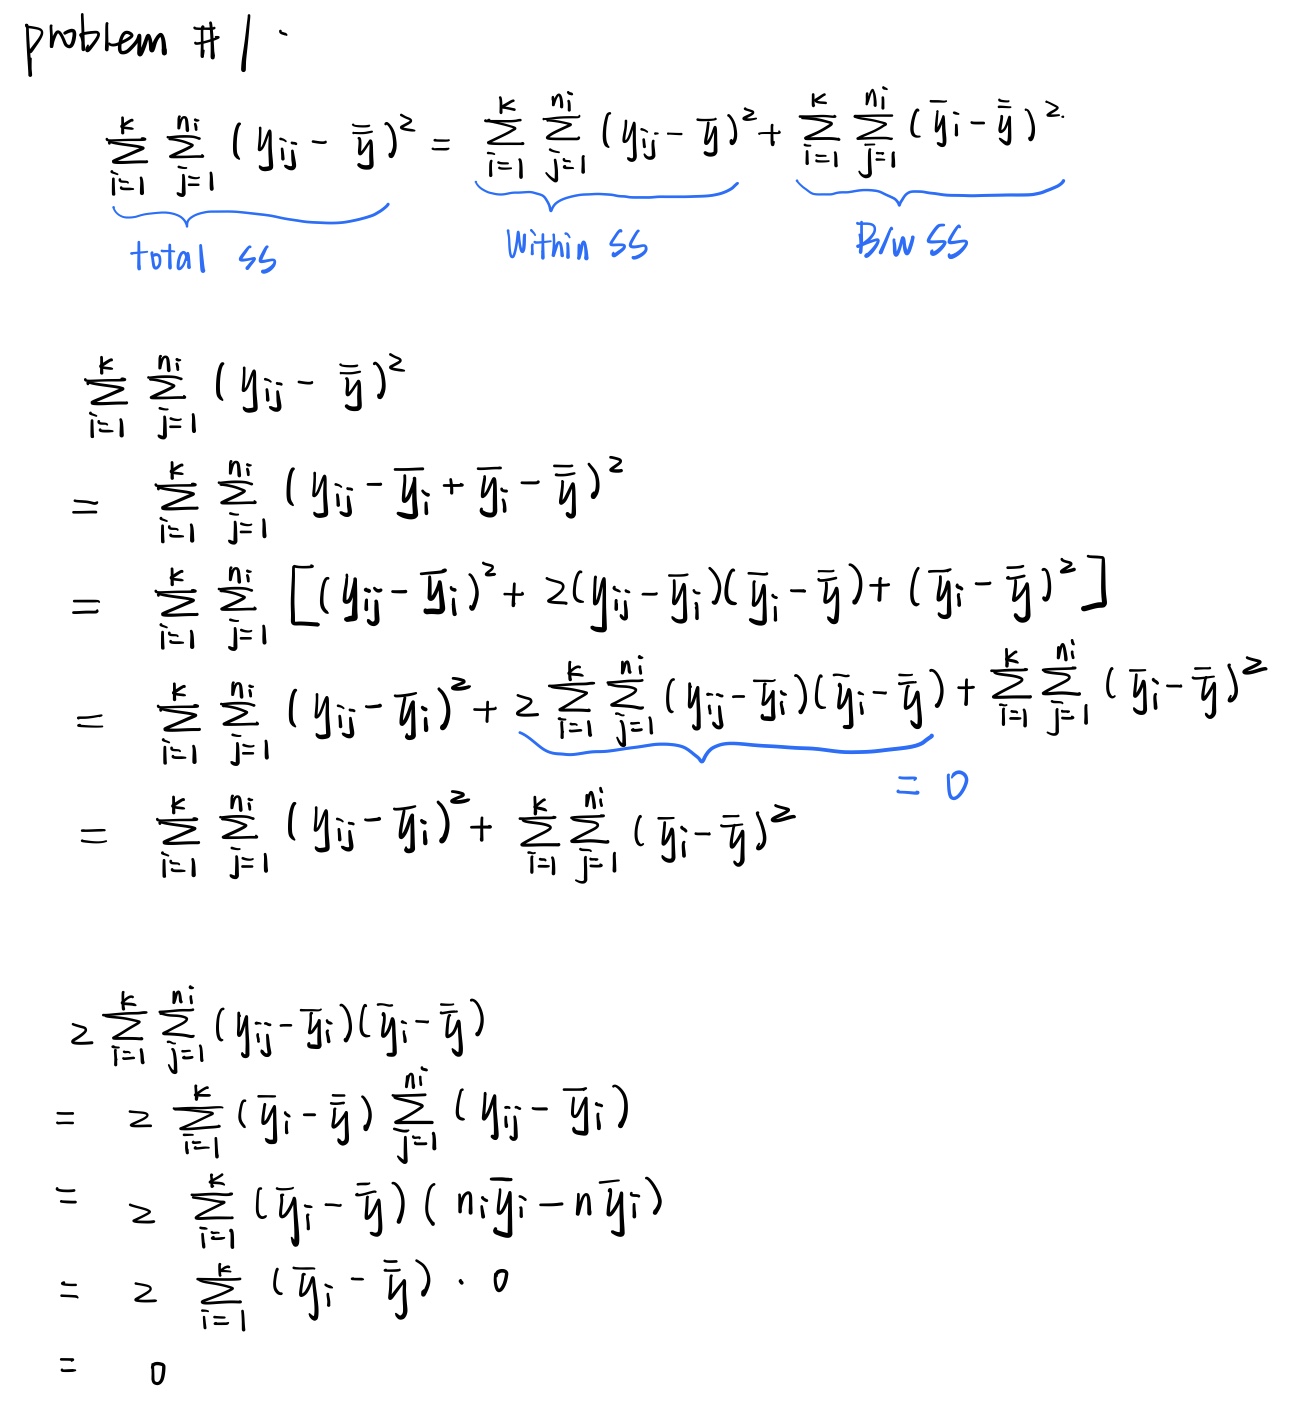 problem #1.
$\sum_{i=1}^{k} \sum_{j=1}^{n_i} (y_{ij} - \bar{\bar{y}})^2 = \sum_{i=1}^{k} \sum_{j=1}^{n_i} (y_{ij} - \bar{y})^2 + \sum_{i=1}^{k} \sum_{j=1}^{n_i} (\bar{y}_i - \bar{\bar{y}})^2.$
total SS   Within SS   B/w SS
$\sum_{i=1}^{k} \sum_{j=1}^{n_i} (y_{ij} - \bar{\bar{y}})^2$
$= \sum_{i=1}^{k} \sum_{j=1}^{n_i} (y_{ij} - \bar{y}_i + \bar{y}_i - \bar{\bar{y}})^2$
$= \sum_{i=1}^{k} \sum_{j=1}^{n_i} [(y_{ij} - \bar{y}_i)^2 + 2(y_{ij} - \bar{y}_i)(\bar{y}_i - \bar{\bar{y}}) + (\bar{y}_i - \bar{\bar{y}})^2]$
$= \sum_{i=1}^{k} \sum_{j=1}^{n_i} (y_{ij} - \bar{y}_i)^2 + 2 \sum_{i=1}^{k} \sum_{j=1}^{n_i} (y_{ij} - \bar{y}_i)(\bar{y}_i - \bar{\bar{y}}) + \sum_{i=1}^{k} \sum_{j=1}^{n_i} (\bar{y}_i - \bar{\bar{y}})^2$
= 0
$= \sum_{i=1}^{k} \sum_{j=1}^{n_i} (y_{ij} - \bar{y}_i)^2 + \sum_{i=1}^{k} \sum_{j=1}^{n_i} (\bar{y}_i - \bar{\bar{y}})^2$
$2 \sum_{i=1}^{k} \sum_{j=1}^{n_i} (y_{ij} - \bar{y}_i)(\bar{y}_i - \bar{\bar{y}})$
$= 2 \sum_{i=1}^{k} (\bar{y}_i - \bar{\bar{y}}) \sum_{j=1}^{n_i} (y_{ij} - \bar{y}_i)$
$= 2 \sum_{i=1}^{k} (\bar{y}_i - \bar{\bar{y}}) (n_i \bar{y}_i - n \bar{y}_i)$
$= 2 \sum_{i=1}^{k} (\bar{y}_i - \bar{\bar{y}}) \cdot 0$
= 0